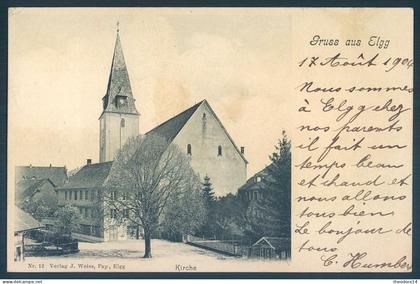 Gruss aus Elgg
17 Août 1904
Nous sommes
à Elgg chez
nos parents
il fait un
temps beau
et chaud et
nous allons
tous bien
Le bonjour de
tous
C. Humber
Nr. 12 Verlag J. Weiss, Pap., Elgg
Kirche
©delcampe.net
theodore14